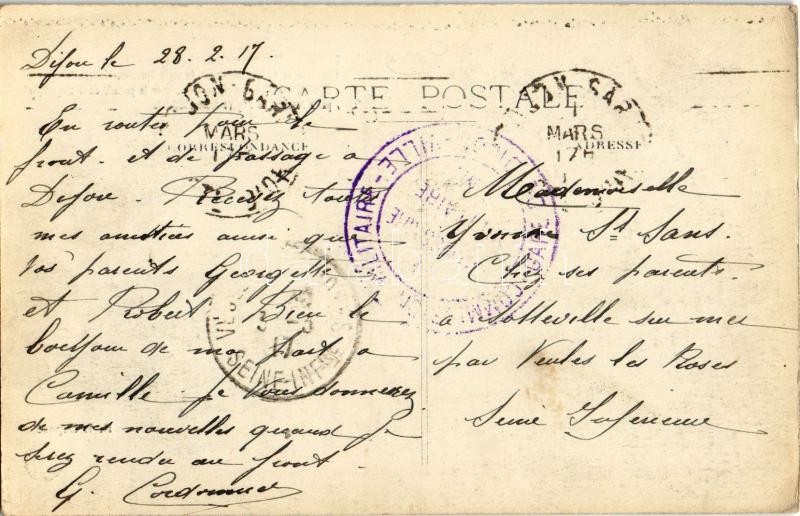 Dijon le 28.2.17.
CARTE POSTALE
CORRESPONDANCE
ADRESSE
En routes pour le
front. et de passage a
Dijon. Recevez toutes
mes amities ainsi que
vos parents Georgette
et Robert Bien le
bonjour de ma part a
Camille. Je vous donnerez
de mes nouvelles quand je
serez rendu au front.
G. Cordonnier
Mademoiselle
Yvonne St Sans.
Chez ses parents.
a Sotteville sur mer
par Veules les Roses
Seine Inferieure
MARS
MARS
17
SEINE-INFRE
MILITAIRE
GARE